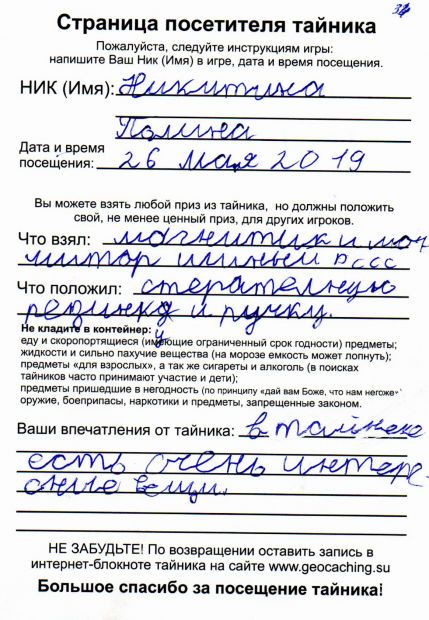 Страница посетителя тайника
Пожалуйста, следуйте инструкциям игры:
напишите Ваш Ник (Имя) в игре, дата и время посещения.
НИК (Имя): Никитина
Полина
Дата и время
посещения: 26 мая 2019
Вы можете взять любой приз из тайника, но должны положить
свой, не менее ценный приз, для других игроков.
Что взял: магнитик и
Что положил: стерательную
резинку и ручку.
Не кладите в контейнер:
еду и скоропортящиеся (имеющие ограниченный срок годности) предметы;
жидкости и сильно пахучие вещества (на морозе емкость может лопнуть);
предметы «для взрослых», а так же сигареты и алкоголь (в поисках
тайников часто принимают участие и дети);
предметы пришедшие в негодность (по принципу «дай вам Боже, что нам негоже»
оружие, боеприпасы, наркотики и предметы, запрещенные законом.
Ваши впечатления от тайника: в тайнеке
есть очень интере
сные вещи.
НЕ ЗАБУДЬТЕ! По возвращении оставить запись в
интернет-блокноте тайника на сайте www.geocaching.su
Большое спасибо за посещение тайника!